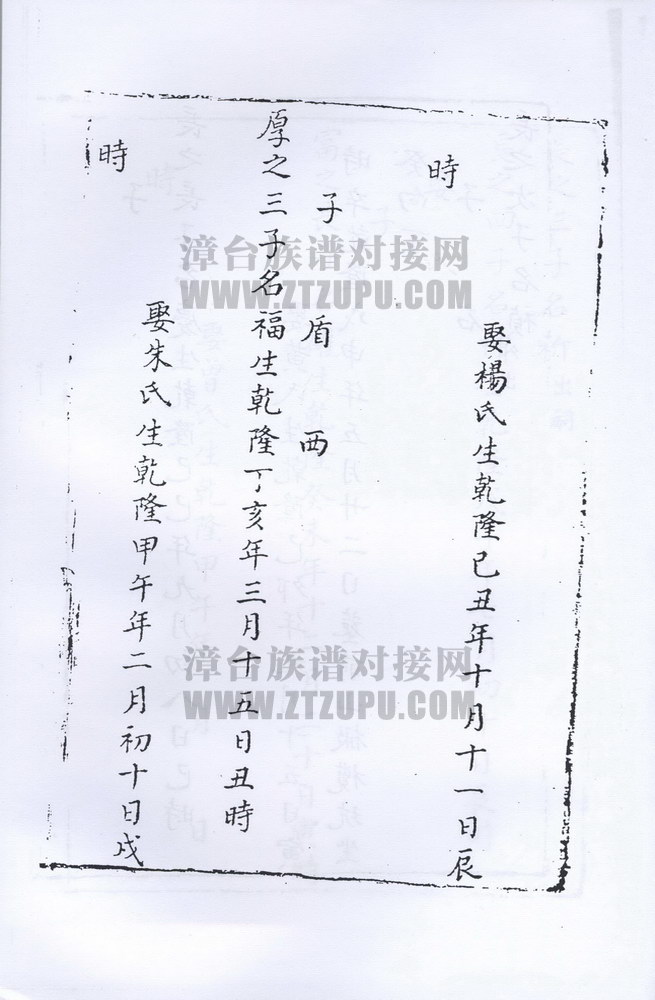 娶楊氏生乾隆己丑年十月十一日辰
時
子 盾 西
厚之三子名福生乾隆丁亥年三月十五日丑時
娶朱氏生乾隆甲午年二月初十日戌
時
漳台族谱对接网
WWW.ZTZUPU.COM
漳台族谱对接网
WWW.ZTZUPU.COM